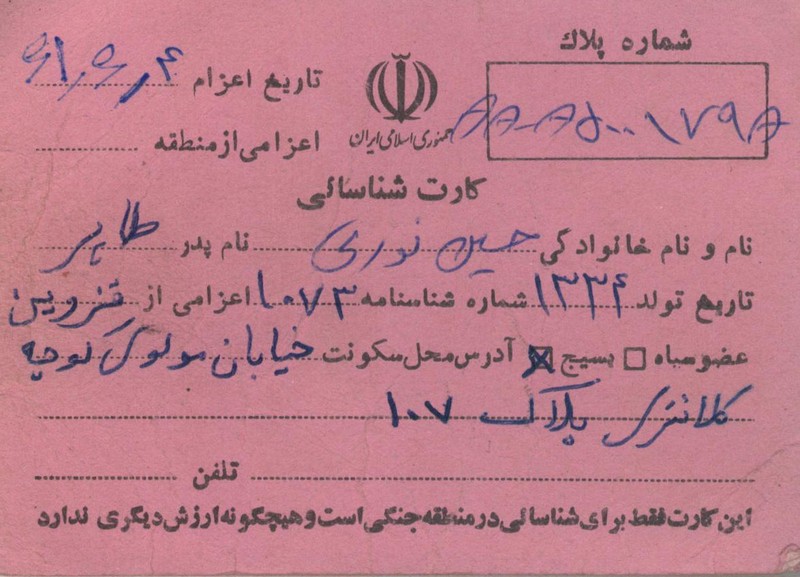 شماره پلاك
تاریخ اعزام ۶۱٫۹٫۴
جمهوری اسلامی ایران
اعزامی از منطقه
کارت شناسائی
نام و نام خانوادگی حسین نوری نام پدر طاهر
تاریخ تولد ۱۳۳۴ شماره شناسنامه ۱۰۷۳ اعزامی از قزوین
عضو سپاه □ بسیج ☒ آدرس محل سکونت خیابان مولوی کوچه
کلانتری پلاک ۱۰۷
تلفن
این کارت فقط برای شناسائی در منطقه جنگی است و هیچگونه ارزش دیگری ندارد